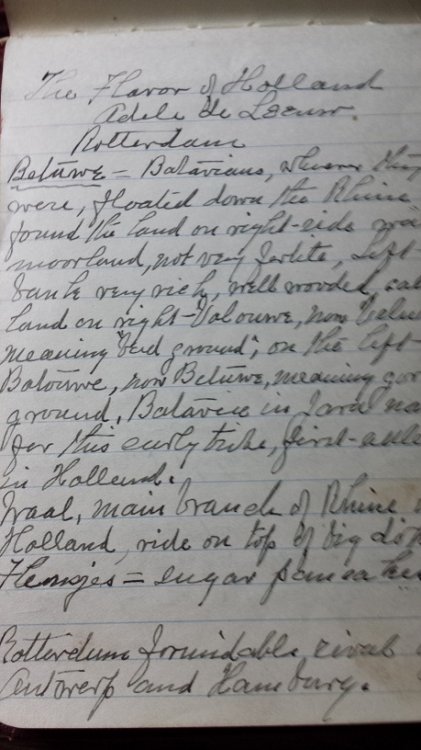 The Flavor of Holland
Adele de Leeuw.
Rotterdam
Betuwe – Batavians, whence they
were, floated down the Rhine
found the land on right-side was
moorland, not very fertile, left
bank very rich, well wooded, cal
land on right-Valouwe, now Velu
meaning "bad ground"; on the left
Batouwe, now Betuwe, meaning goo
ground. Batavia in Java na
for this early tribe, first-
in Holland.
Waal, main branch of Rhine
Holland, ride on top of big
Flensjes = sugar pancakes
Rotterdam formidable rival
Antwerp and Hamburg.